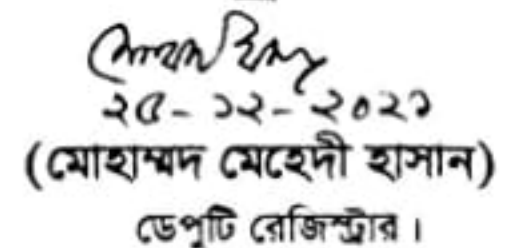 ২৫-১২-২০২১
(মোহাম্মদ মেহেদী হাসান)
ডেপুটি রেজিস্ট্রার।